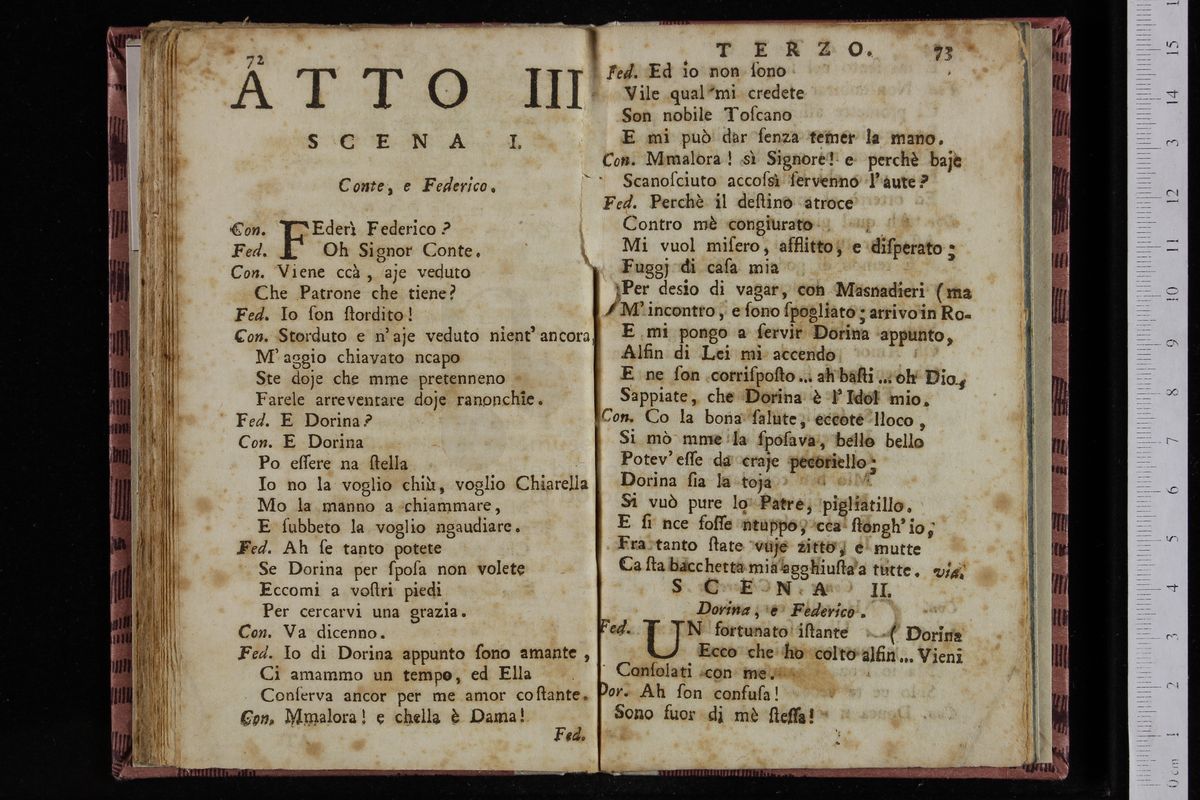 72
ATTO III
SCENA I.
Conte, e Federico.
Con. FEderì Federico?
Fed. Oh Signor Conte.
Con. Viene ccà, aje veduto
Che Patrone che tiene?
Fed. Io ſon ſtordito!
Con. Storduto e n'aje veduto nient'ancora,
M'aggio chiavato ncapo
Ste doje che mme pretenneno
Farele arreventare doje ranonchie.
Fed. E Dorina?
Con. E Dorina
Po eſſere na ſtella
Io no la voglio chiù, voglio Chiarella
Mo la manno a chiammare,
E ſubbeto la voglio ngaudiare.
Fed. Ah ſe tanto potete
Se Dorina per ſpoſa non volete
Eccomi a voſtri piedi
Per cercarvi una grazia.
Con. Va dicenno.
Fed. Io di Dorina appunto ſono amante,
Ci amammo un tempo, ed Ella
Conſerva ancor per me amor coſtante.
Con. Mmalora! e chella è Dama!
Fed.
TERZO. 73
Fed. Ed io non ſono
Vile qual mi credete
Son nobile Toſcano
E mi può dar ſenza temer la mano.
Con. Mmalora! sì Signore! e perchè baje
Scanoſciuto accoſsì ſervenno l'aute?
Fed. Perchè il deſtino atroce
Contro mè congiurato
Mi vuol miſero, afflitto, e diſperato;
Fuggj di caſa mia
Per desio di vagar, con Masnadieri (ma
M'incontro, e ſono ſpogliato; arrivo in Ro-
E mi pongo a ſervir Dorina appunto,
Alfin di Lei mi accendo
E ne ſon corriſpoſto... ah baſti... oh Dio,
Sappiate, che Dorina è l'Idol mio.
Con. Co la bona ſalute, eccote lloco,
Si mò mme la ſpoſava, bello bello
Potev'eſſe da craje pecoriello;
Dorina ſia la toja
Si vuò pure lo Patre, pigliatillo.
E ſi nce foſſe ntuppo, cca ſtongh'io,
Fra tanto ſtate vuje zitto, e mutte
Ca ſta bacchetta mia agghiuſta a tutte. via.
SCENA II.
Dorina, e Federico.
Fed. UN fortunato iſtante (Dorina
Ecco che ho colto alfin... Vieni
Conſolati con me.
Dor. Ah ſon confuſa!
Sono fuor di mè ſteſſa!